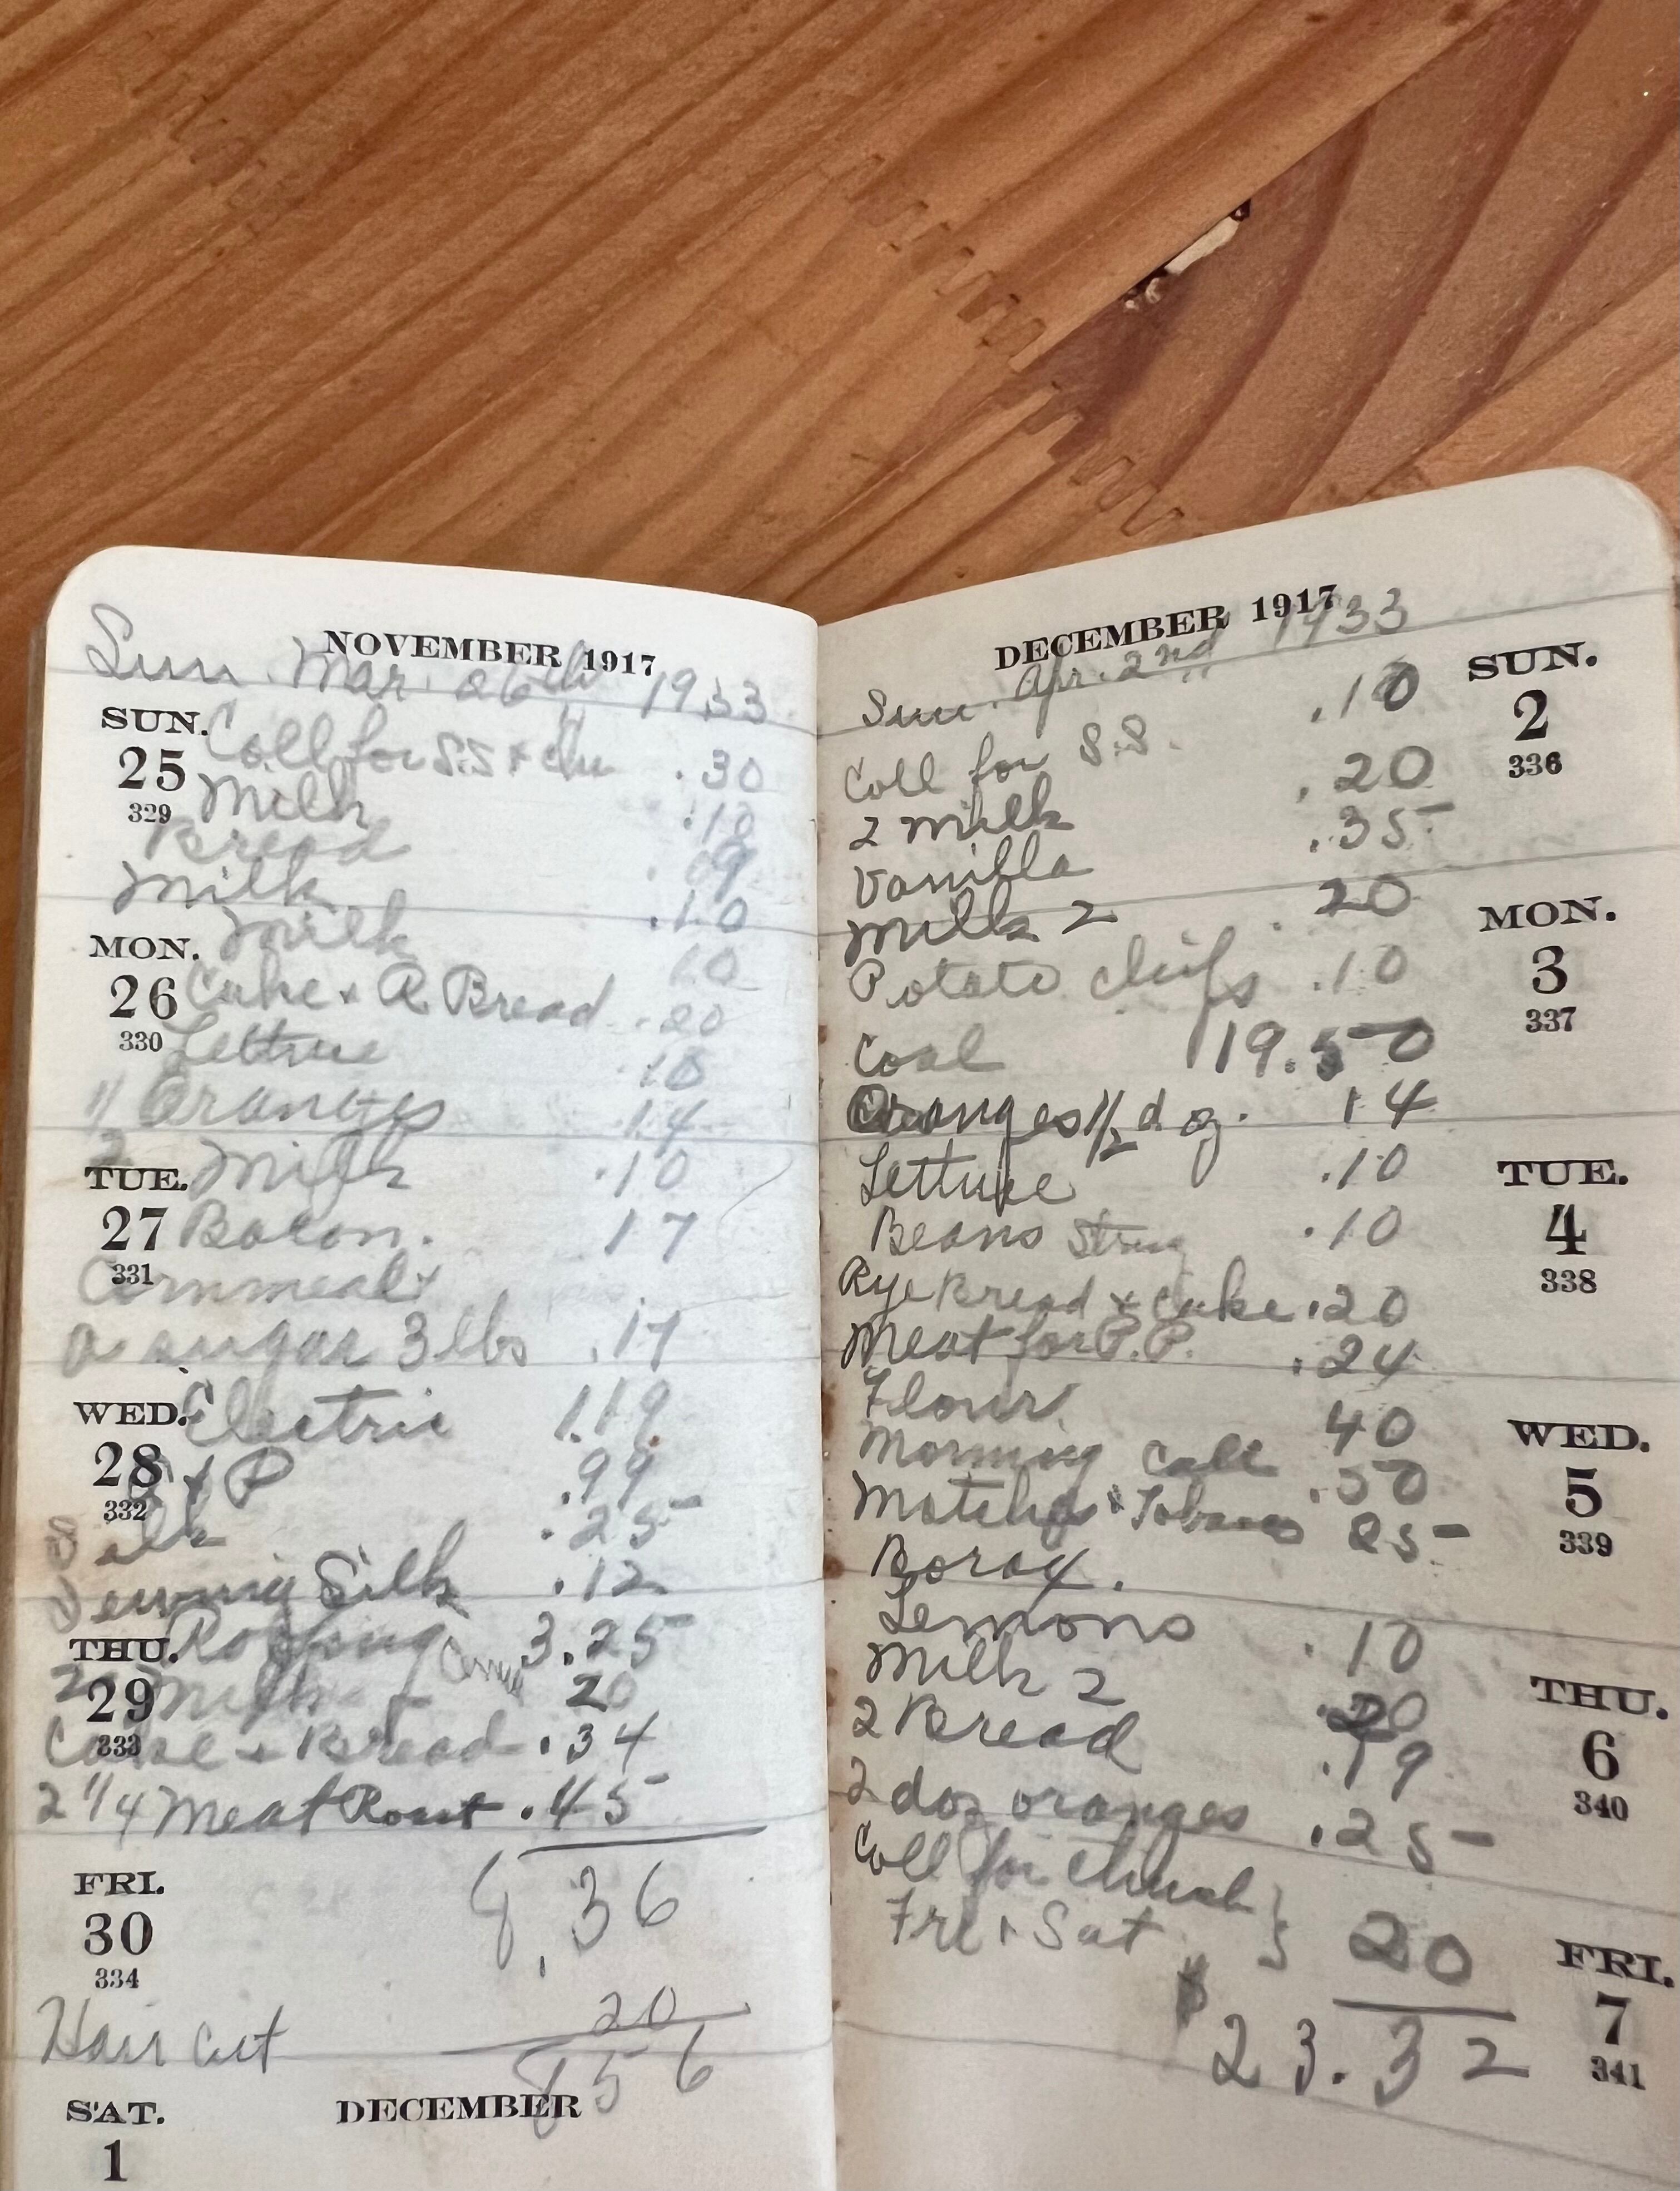 NOVEMBER 1917
Sun. Mar. 26th 1933
SUN.
25
329
Coll for S.S + Chu .30
Milk .10
Bread .09
Milk .10
MON.
26
330
Milk 10
Cake + R Bread .20
Lettuce .10
Oranges .14
TUE.
27
331
Milk .10
Bacon. 17
Cornmeal +
sugar 3 lbs .17
WED.
28
332
Electric 1.19
A + P .99
Salt .25
Sewing Silk .12
THU.
29
333
Roofing 3.25
2 Milk 20
Cake + Bread .34
2 1/4 Meat Roast .45
FRI.
30
334
8.36
20
Hair cut
856
SAT.
1
DECEMBER
DECEMBER 1917
Sun. Apr. 2nd 1933
SUN.
2
336
Coll for S.S. .10
2 milk .20
Vanilla .35
MON.
3
337
Milk 2 .20
Potato chips .10
Coal 19.50
Oranges 1/2 doz. 14
TUE.
4
338
Lettuce .10
Beans String .10
Rye Bread + Cake .20
Meat for P.P. .24
WED.
5
339
Flour 40
Morning Call .50
Matches + Tobacco 25
Borax.
THU.
6
340
Lemons .10
Milk 2 .20
2 Bread .19
2 doz oranges .25
FRI.
7
341
Coll for church }
Fri + Sat } 20
$23.32